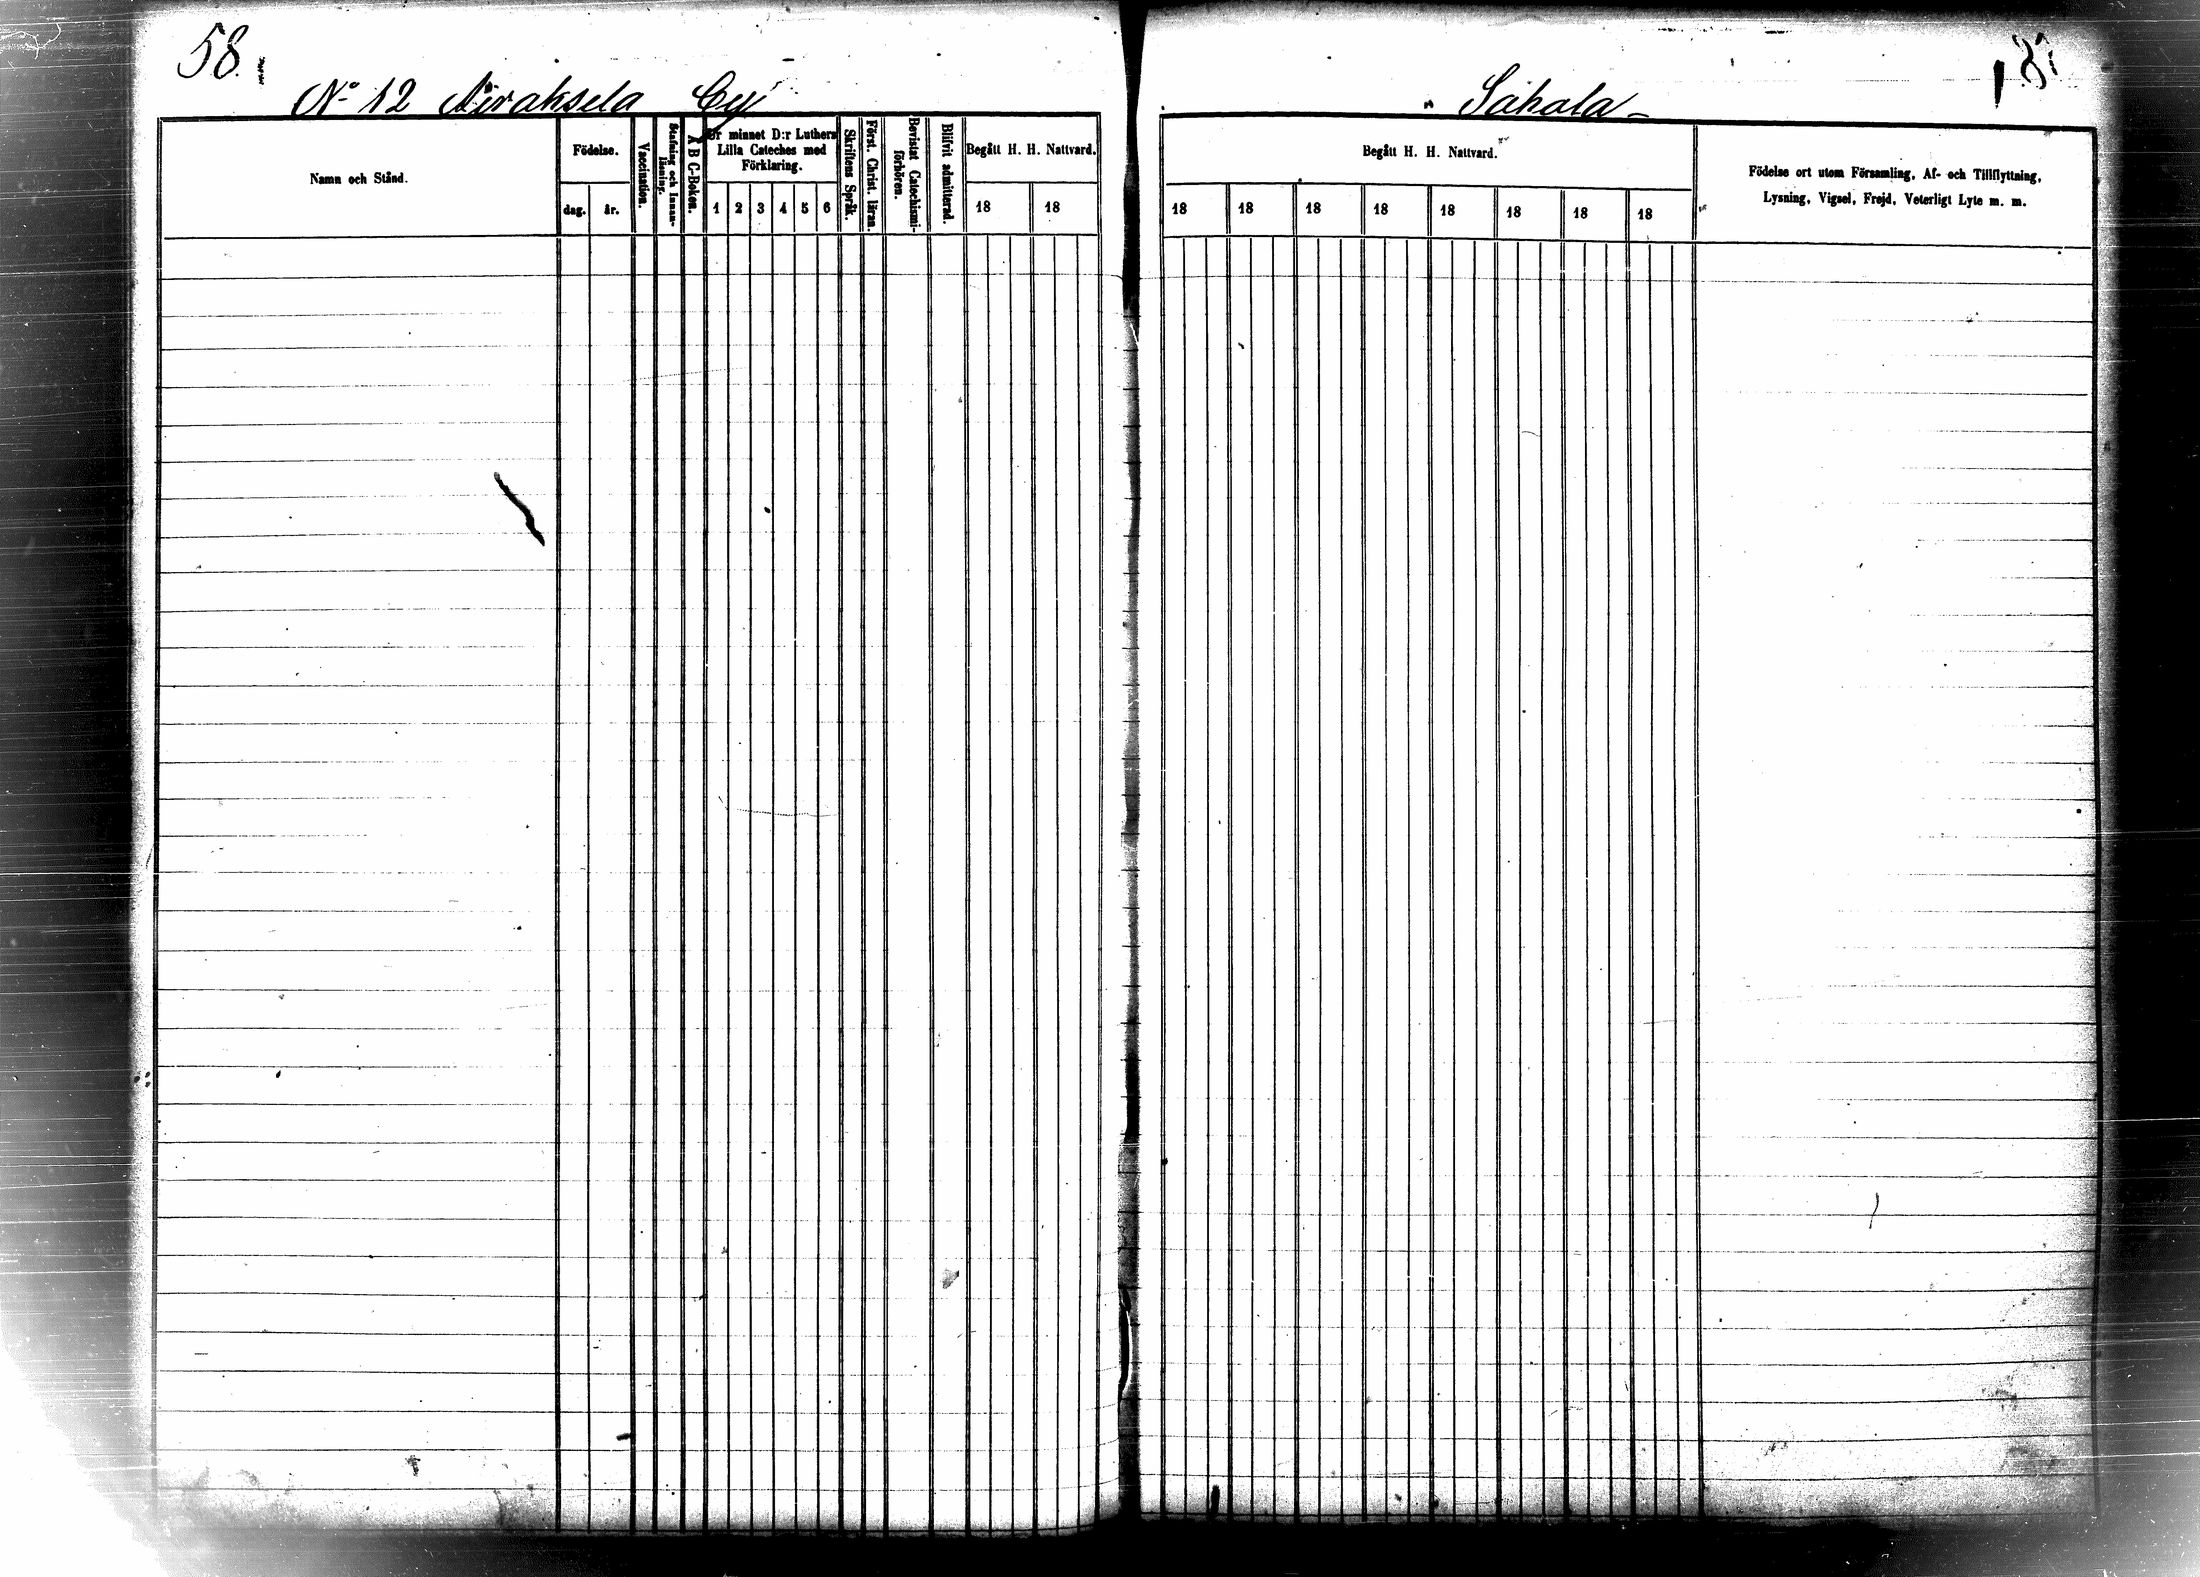 58.
No 12 Airaksela By
Sahala
Namn och Stånd.
Födelse.
dag.
år.
Vaccination.
Stafning och Innan-
läsning.
A B C-Boken.
Ur minnet D:r Luthers
Lilla Cateches med
Förklaring.
1 2 3 4 5 6
Skriftens Språk.
Först. Christ. läran.
Bevistat Catechismi-
förhören.
Blifvit admitterad.
Begått H. H. Nattvard.
18 18
Begått H. H. Nattvard.
18 18 18 18 18 18 18 18
Födelse ort utom Församling, Af- och Tillflyttning,
Lysning, Vigsel, Frejd, Veterligt Lyte m. m.